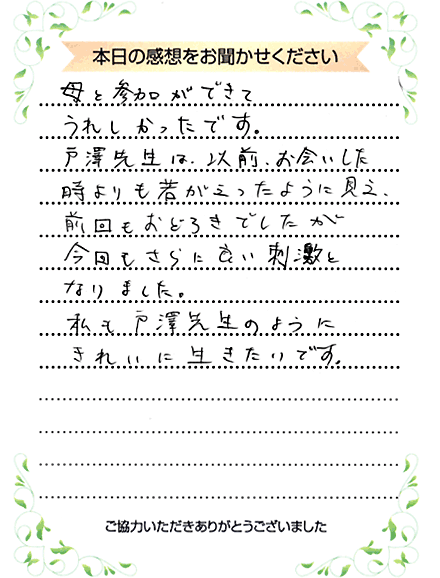 本日の感想をお聞かせください
母と参加ができて
うれしかったです。
戸澤先生は、以前、お会いした
時よりも若がえったように見え、
前回もおどろきでしたが
今回もさらに良い刺激と
なりました。
私も戸澤先生のように
きれいに生きたいです。
ご協力いただきありがとうございました